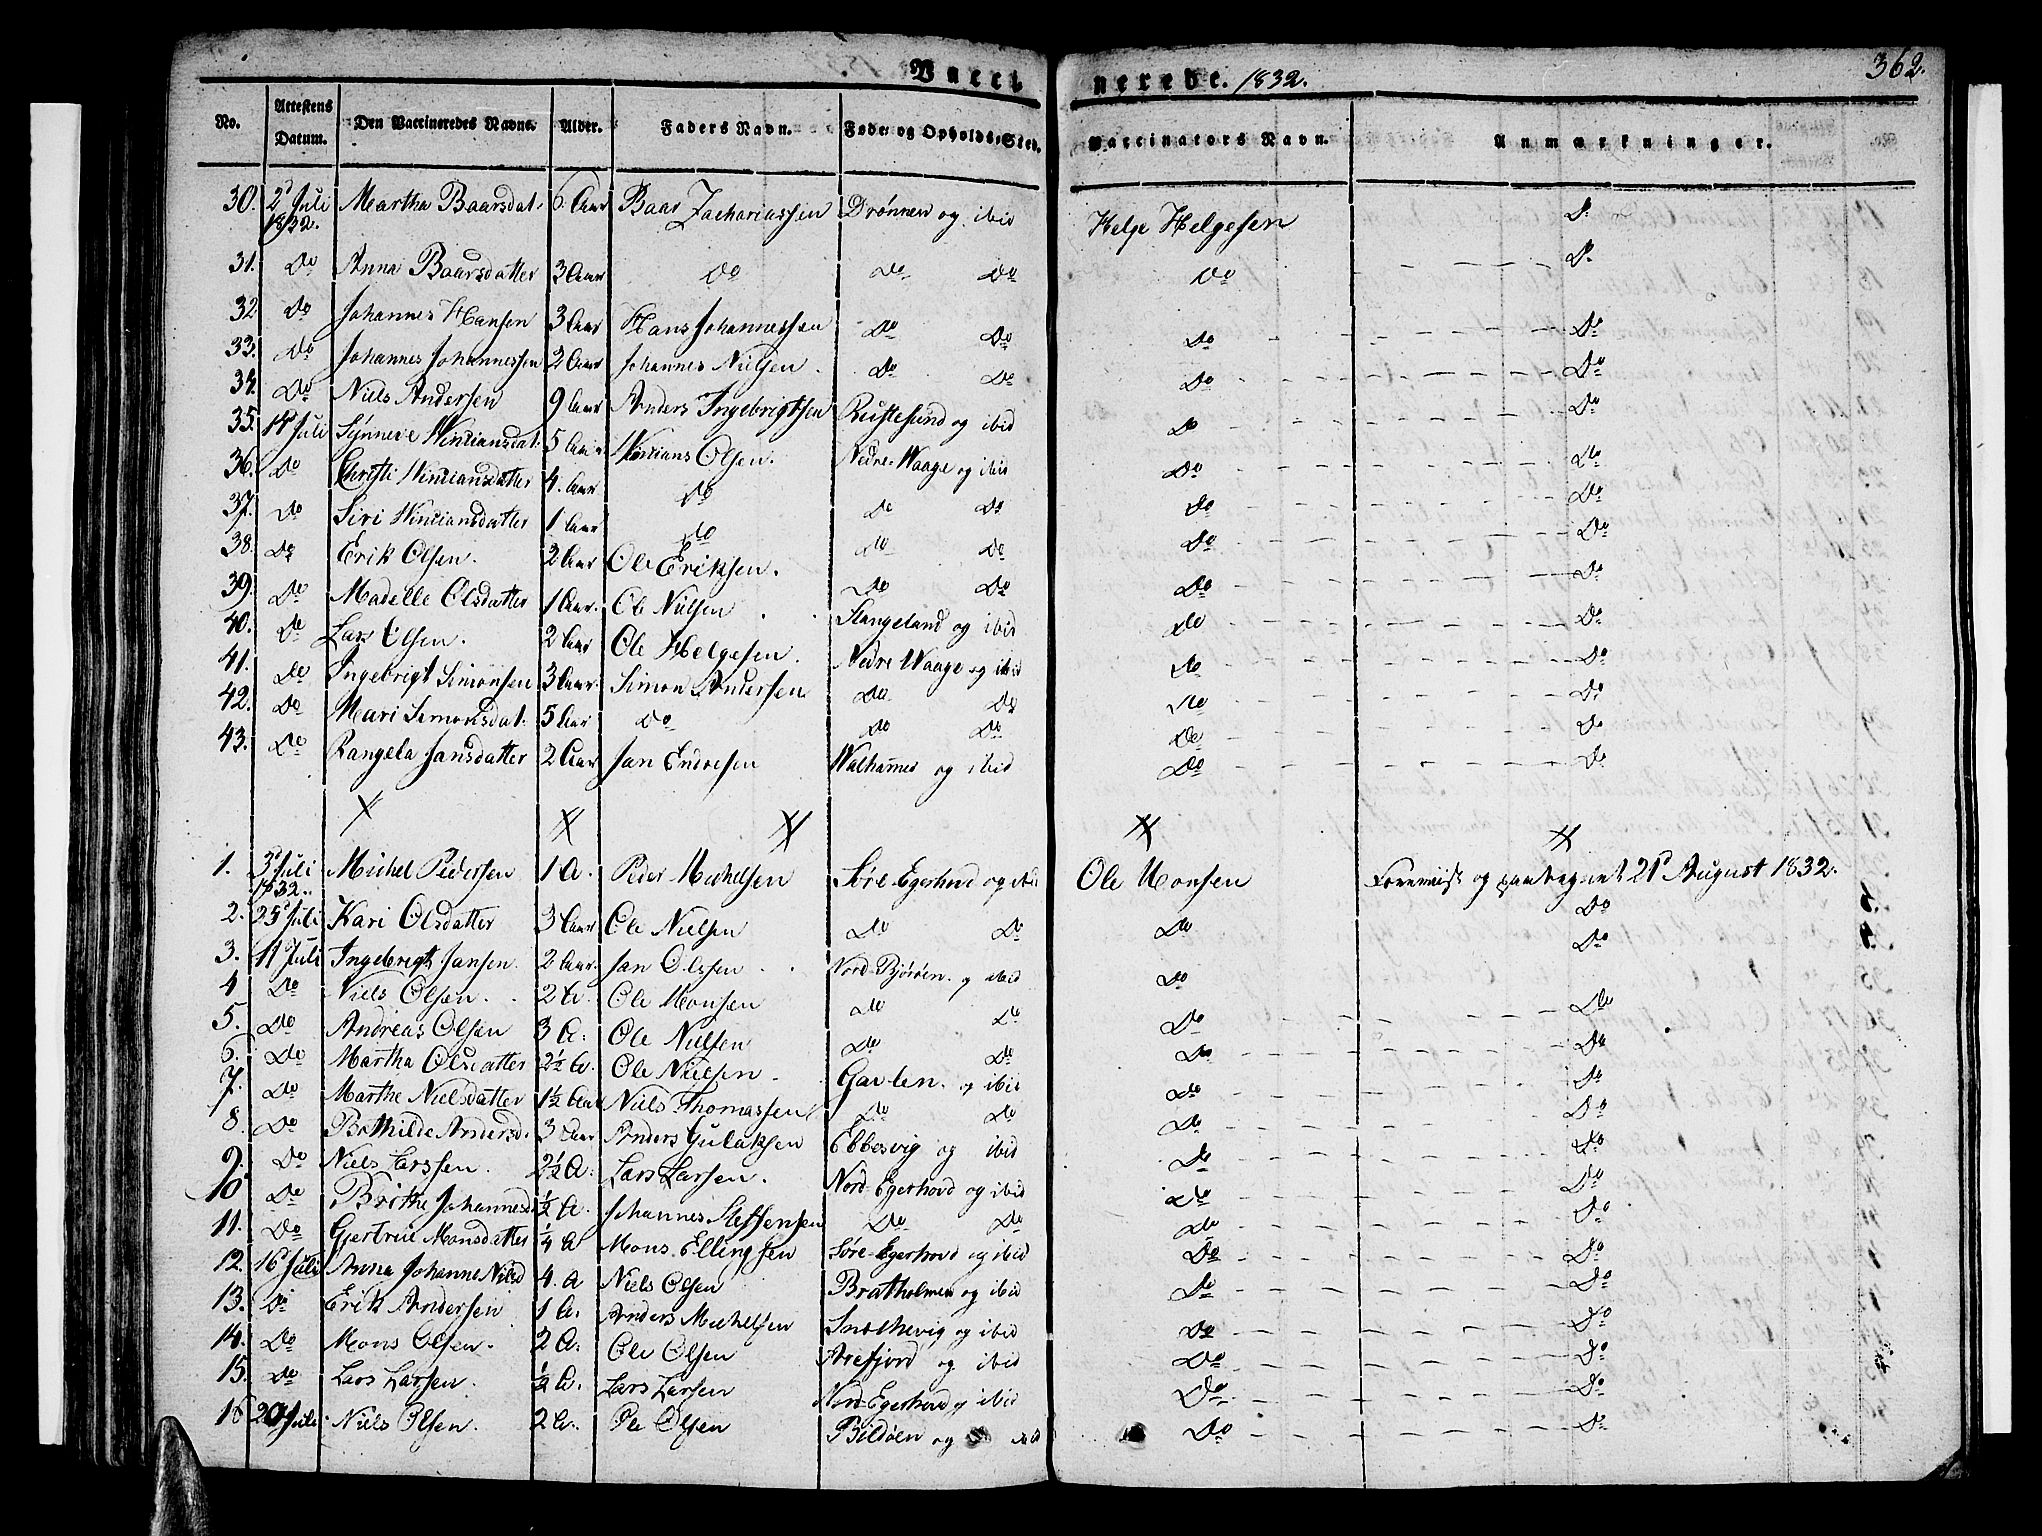 Vacci nerede. 1832. 362.
No. Attestens Datum. Den Vaccineredes Navne. Alder. Faders Navn. Føde- og Opholds-Sted. Vaccinators Navn. Anmærkninger.
30. 2d Juli 1832. Martha Baarsdat. 6 Aar Baar Zachariassen Drønnen og ibid Helje Helgesen D.
31. Do Anna Baarsdatter 3 Aar Do Do Do Do D.
32 Do Johannes Hansen 3 Aar Hans Johannessen Do Do Do Do
33. Do Johannes Johannessen 2 Aar Johannes Nielsen. Do Do Do Do
34. Do Niels Andersen 9 Aar Anders Ingebrigtsen Rustesund og ibid Do Do
35. 14 Juli Synneve Vinciansdat. 5 Aar Vincians Olsen. Nedre-Waage og ibid Do Do
36. Do Christi Vinciansdatter 4. Aar Do Do Do Do Do
37. Do Siri Vinciansdatter 1 Aar Do Do Do Do Do
38. Do Erik Olsen. 2 Aar Ole Eriksen. Do Do Do Do
39. Do Madelle Olsdatter 1 Aar. Ole Nielsen Slangeland og ibid Do Do
40. Do Lars Olsen. 2 Aar Ole Helgesen. Nedre Waage og ibid Do Do
41. Do Ingebrigt Simonsen 3 Aar. Simon Andersen Do Do Do Do
42. Do Mari Simonsdat. 5 Aar Do Do Do Do Do
43. Do Rangela Jansdatter 2 Aar Jan Endresen Walhamer og ibid Do Do
1. 3d Juli 1832. Michel Pedersen 1 A. Peder Michelsen Søre-Egerhovd og ibid Ole Monsen Foreviist og paategnet 21d August 1832.
2. 25d Juli Kari Olsdatter 3 Aar Ole Nielsen Do Do Do Do
3. 11 Juli Ingebrigt Jansen. 2 Aar. Jan Olssen Nord-Bjørøen. og ibid Do Do
4 Do Niels Olsen. 2 A. Ole Monsen Do Do Do Do
5. Do Andreas Olsen 3 A. Ole Nielsen Do Do Do Do
6. Do Martha Olsdatter 2½ A. Ole Nielsen. Garten. og ibid Do Do
7. Do Marthe Nielsdatter 1½ Aar Niels Thomassen Do Do Do Do
8. Do Bothilde Andersd. 3 Aar Anders Gulaksen Ebbesvig og ibid Do Do
9. Do Niels Larssen. 2½ A. Lars Larsen. Nord-Egerhovd og ibid Do Do
10 Do Brithe Johannesd. ½ A. Johannes Steffensen Do Do Do Do
11. Do Gjertrue Monsdatter ¼ A Mons Ellingsen Søre-Egerhovd og ibid Do Do
12. 16d Juli Anna Johanne Nilsd 4. A Niels Olsen Bratholmen og ibid Do Do
13. Do Erik Andersen 1 A. Anders Michelsen Snekkevig og ibid Do Do
14. Do Mons Olsen. 2 A. Ole Olsen Arefjord og ibid Do Do
15. Do Lars Larsen. ½ A. Lars Larsen Nord-Egerhovd og ibid Do Do
16 20d Juli. Niels Olsen. 2 A. Ole Olsen Bildøen og ibid Do Do